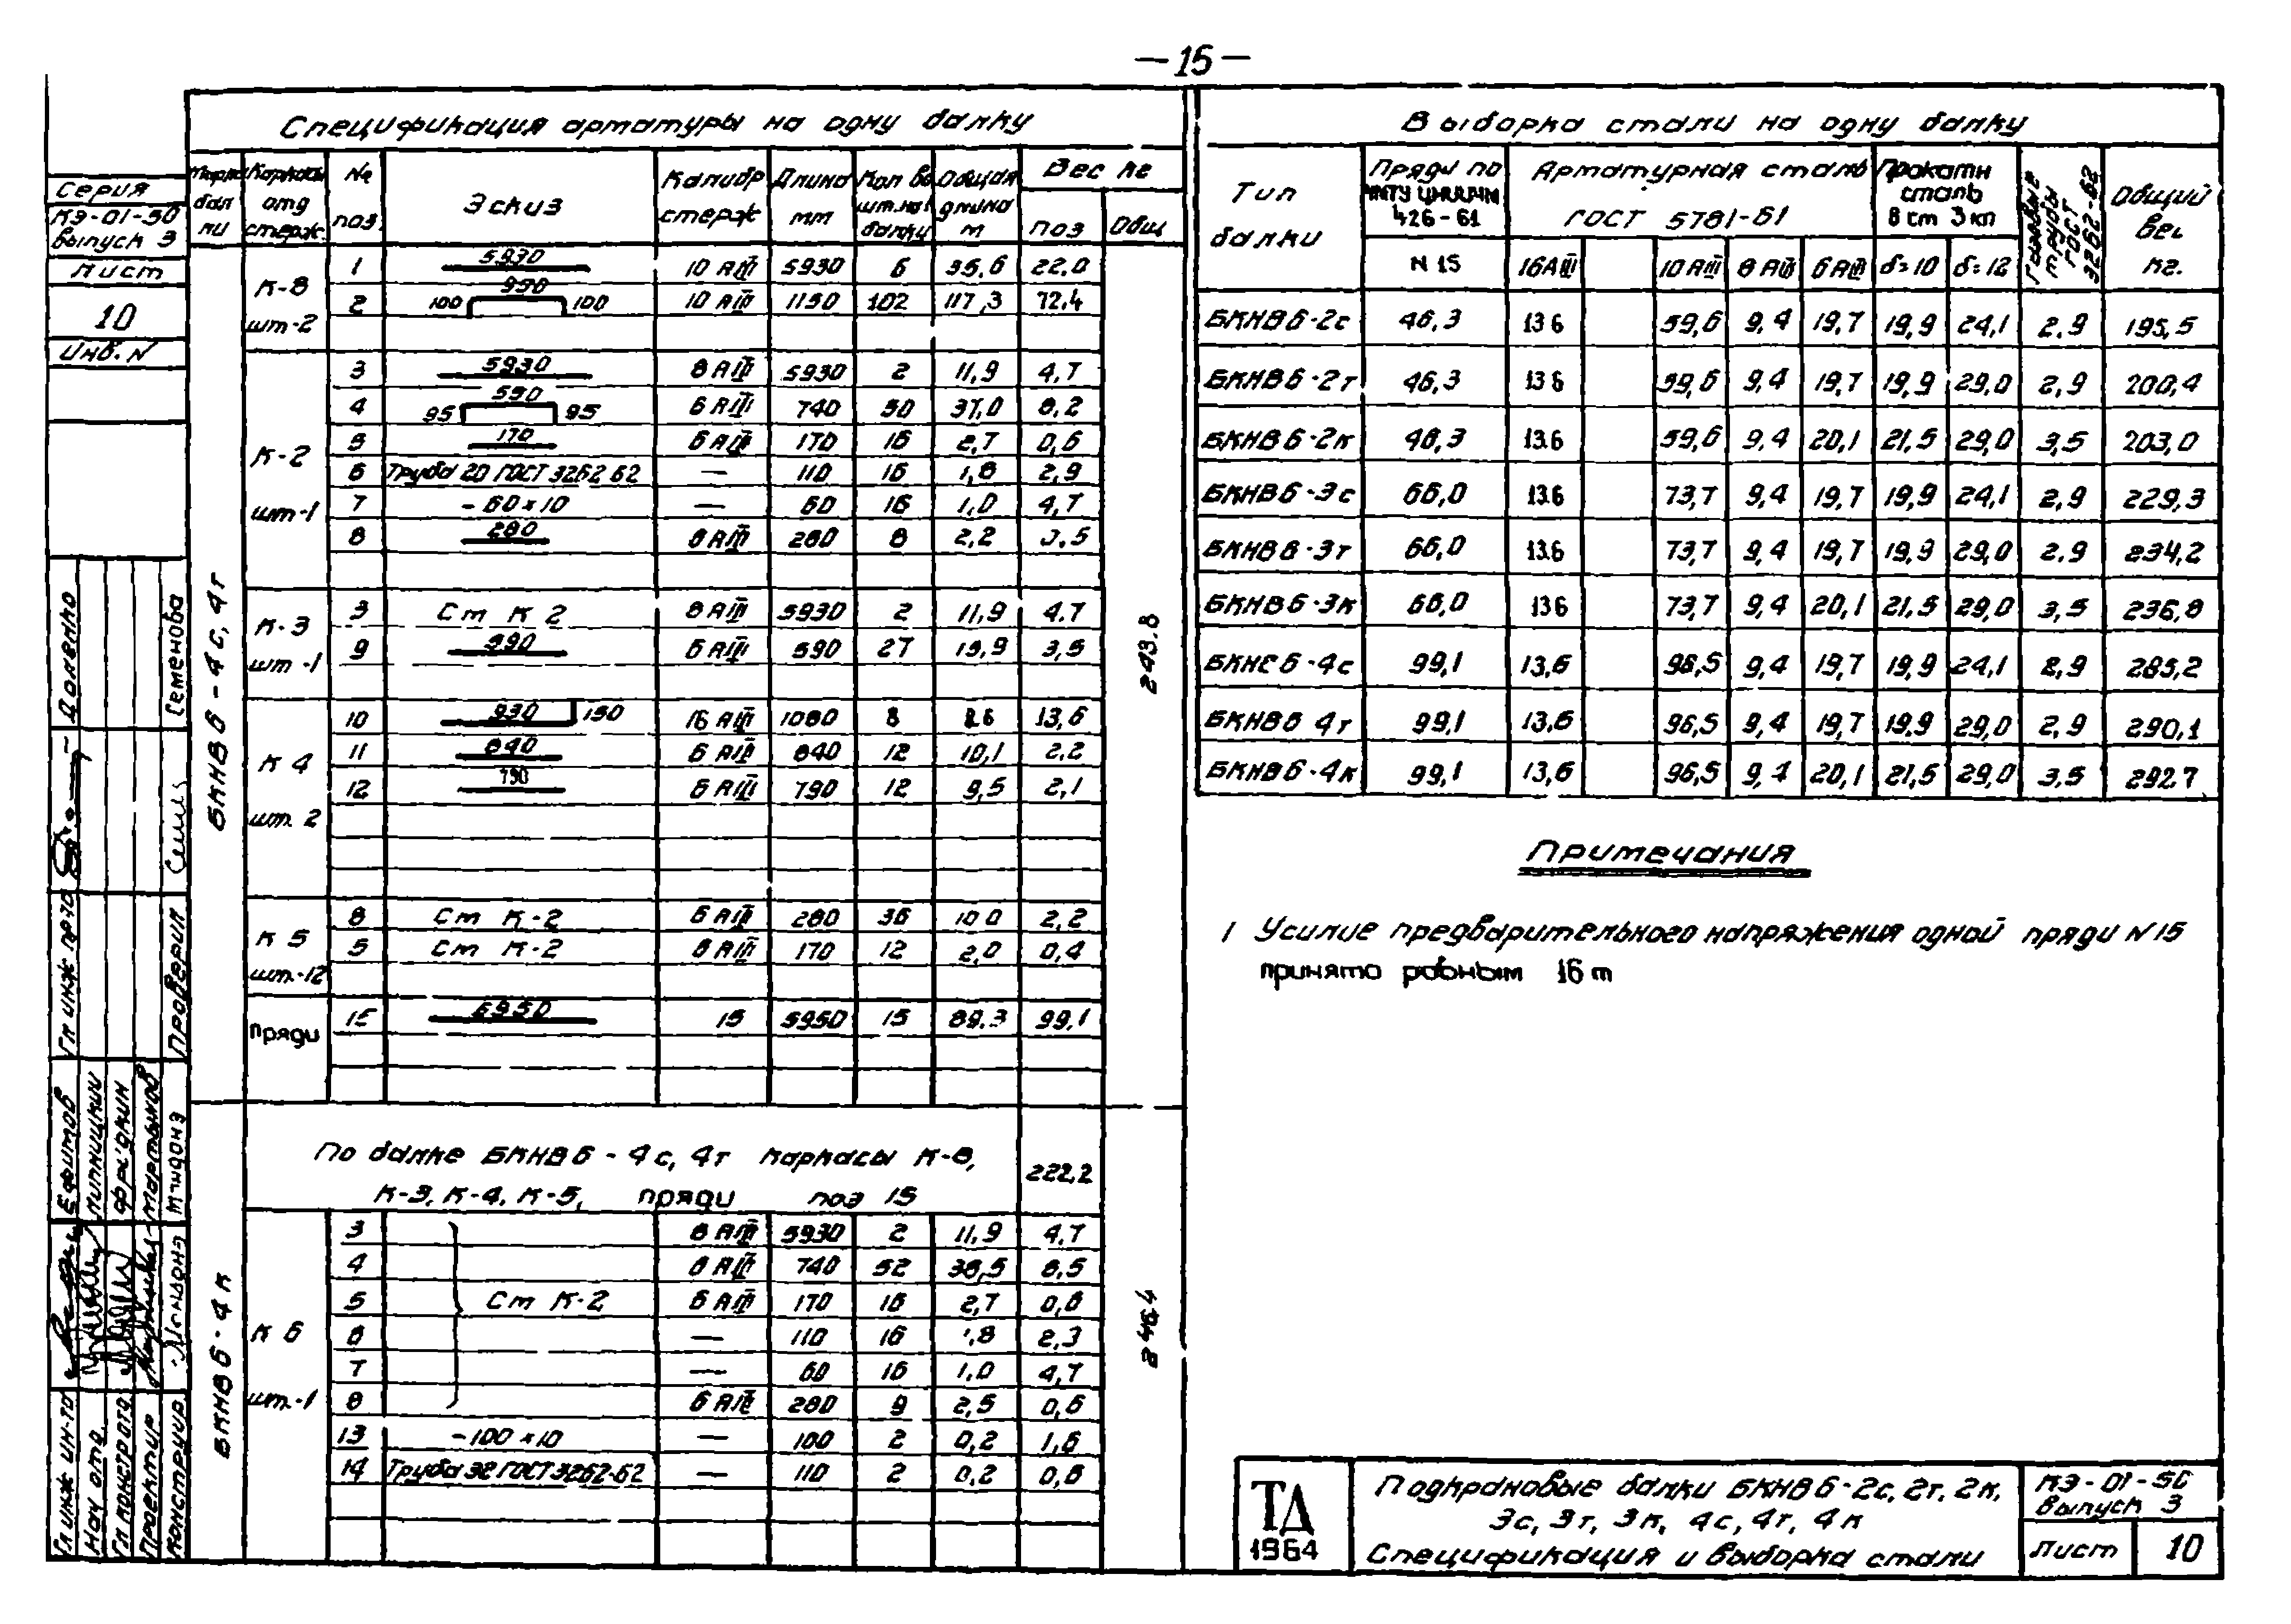 — 15 —
Спецификация арматуры на одну балку
Марка балки | Каркасы отд стерж. | № поз. | Эскиз | Калибр стерж | Длина мм | Кол во шт. на 1 балку | Общая длина м | Вес кг
поз | Общ
БКНВ6-4с, 4т
К-8 шт-2
1 | 5930 | 10 АIII | 5930 | 6 | 35,6 | 22,0
2 | 100 950 100 | 10 АIII | 1150 | 102 | 117,3 | 72,4
К-2 шт-1
3 | 5930 | 8 АIII | 5930 | 2 | 11,9 | 4,7
4 | 95 550 95 | 6 АIII | 740 | 50 | 37,0 | 8,2
5 | 170 | 6 АIII | 170 | 16 | 2,7 | 0,6
6 | Труба 20 ГОСТ 3262 62 | — | 110 | 16 | 1,8 | 2,9
7 | - 60 x 10 | — | 60 | 16 | 1,0 | 4,7
8 | 280 | 6 АIII | 280 | 8 | 2,2 | 0,5
К-3 шт-1
3 | Ст К 2 | 8 АIII | 5930 | 2 | 11,9 | 4.7
9 | 590 | 6 АIII | 590 | 27 | 15,9 | 3,5
243.8
К 4 шт. 2
10 | 930 150 | 16 АIII | 1080 | 8 | 8.6 | 13,6
11 | 840 | 6 АIII | 840 | 12 | 10,1 | 2,2
12 | 790 | 6 АIII | 790 | 12 | 9,5 | 2,1
К 5 шт.-12
8 | Ст К-2 | 6 АIII | 280 | 36 | 10 0 | 2,2
5 | Ст К-2 | 6 АIII | 170 | 12 | 2,0 | 0,4
пряди
15 | 5950 | 15 | 5950 | 15 | 89.3 | 99,1
БКНВ6-4к
По балке БКНВ6-4с, 4т каркасы К-8,
К-3, К-4, К-5, пряди поз 15 | 222,2
К 6 шт.-1
3 | 8 АIII | 5930 | 2 | 11,9 | 4.7
4 | 6 АIII | 740 | 52 | 38,5 | 8,5
5 | Ст К-2 | 6 АIII | 170 | 16 | 2,7 | 0,6
6 | — | 110 | 16 | 1,8 | 2,9
7 | — | 60 | 16 | 1,0 | 4,7
8 | 6 АIII | 280 | 9 | 2,5 | 0,6
13 | - 100 x 10 | — | 100 | 2 | 0,2 | 1,6
14 | Труба 32 ГОСТ 3262-62 | — | 110 | 2 | 0,2 | 0,6
246,4
Выборка стали на одну балку
Тип балки | Пряди по ЧМТУ ЦНИИЧМ 426-61 | Арматурная сталь ГОСТ 5781-61 | Прокатн сталь В ст 3 кп | Газовые трубы ГОСТ 3262-62 | Общий вес кг.
N 15 | 16АIII | 10 АIII | 8 АIII | 6 АIII | δ=10 | δ=12
БКНВ6-2с | 46,3 | 13 6 | 59,6 | 9,4 | 19,7 | 19,9 | 24,1 | 2.9 | 195,5
БКНВ6-2т | 46,3 | 13 6 | 59,6 | 9,4 | 19,7 | 19,9 | 29,0 | 2,9 | 200,4
БКНВ6-2к | 46,3 | 13.6 | 59,6 | 9,4 | 20,1 | 21,5 | 29,0 | 3,5 | 203,0
БКНВ6-3с | 66,0 | 13.6 | 73,7 | 9,4 | 19,7 | 19,9 | 24,1 | 2,9 | 229,3
БКНВ6-3т | 66,0 | 13.6 | 73,7 | 9,4 | 19,7 | 19,9 | 29,0 | 2.9 | 234,2
БКНВ6-3к | 66,0 | 13 6 | 73,7 | 9,4 | 20,1 | 21,5 | 29,0 | 3,5 | 236,8
БКНВ6-4с | 99,1 | 13,6 | 96,5 | 9,4 | 19,7 | 19,9 | 24,1 | 2,9 | 285,2
БКНВ6 4т | 99,1 | 13,6 | 96,5 | 9,4 | 19,7 | 19.9 | 29,0 | 2,9 | 290,1
БКНВ6-4к | 99,1 | 13,6 | 96,5 | 9,4 | 20,1 | 21,5 | 29,0 | 3,5 | 292.7
Примечания
1 Усилие предварительного напряжения одной пряди N 15
принято равным 16 т
ТД
1964
Подкрановые балки БКНВ6-2с, 2т, 2к,
3с, 3т, 3к, 4с, 4т, 4к
Спецификация и выборка стали
КЭ-01-50
Выпуск 3
Лист 10
Серия
КЭ-01-50
Выпуск 3
Лист
10
Инв. N
Гл инж ин-та Ефимов
Нач отд. Липницкий
Гл констр отд. Фридкин
Проектир Мартынов
Конструир.
Гл инж пр-та Доленко
Проверил Семенова